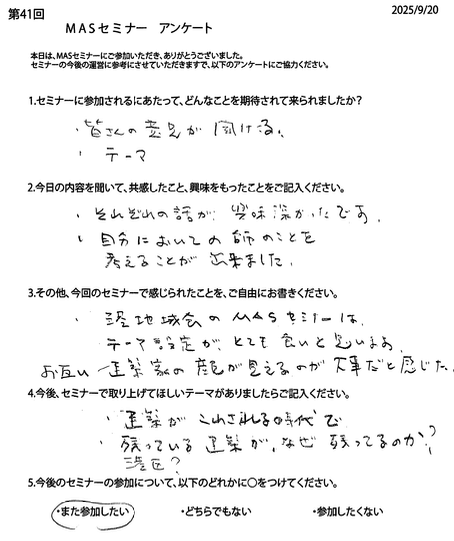 第41回
2025/9/20
MASセミナー アンケート
本日は、MASセミナーにご参加いただき、ありがとうございました。
セミナーの今後の運営に参考にさせていただきますで、以下のアンケートにご協力ください。
1.セミナーに参加されるにあたって、どんなことを期待されて来られましたか?
・皆さんの意見が聞ける。
・テーマ
2.今日の内容を聞いて、共感したこと、興味をもったことをご記入ください。
・それぞれの話が興味深かったです。
・自分においての師のことを
考えることが出来ました。
3.その他、今回のセミナーで感じられたことを、ご自由にお書きください。
・港地域会のMASセミナーは、
テーマ設定がとても良いと思います。
お互い建築家の顔が見えるのが大事だと感じた。
4.今後、セミナーで取り上げてほしいテーマがありましたらご記入ください。
・建築がこわされる時代で
・残っている建築が、なぜ残ってるのか?
港区?
5.今後のセミナーの参加について、以下のどれかに○をつけてください。
・また参加したい ・どちらでもない ・参加したくない